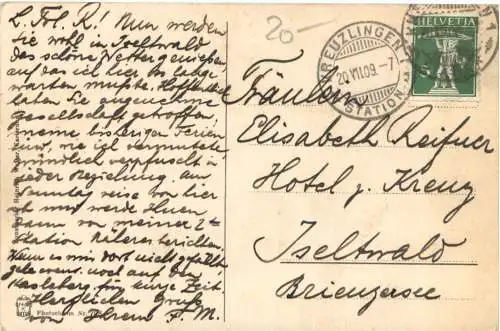 L. Frl. R! Nun werden
Sie wohl in Iseltwald
das schöne Wetter genießen
auf das ich hier so lange
warten mußte. Hoffentlich
haben Sie angenehme
Gesellschaft getroffen,
meine bisherigen Ferien
nun, wie ich vermutete
gründlich verpfuscht in
jeder Beziehung. Am
Samstag reise von hier
u. werde Ihnen
dann von meiner 2ten
Station näheres berichten.
Wenn es mir dort nicht gefällt
noch auf den
Hasleberg für kurze Zeit
Herzlichen Gruß
von Ihrem F. M.
20
KREUZLINGEN 1
20.VII.09. - 7
STATION
HELVETIA
5
Fräulein
Elisabeth Reifner
Hotel z. Kreuz
Iseltwald
Brienzersee
Photochemie